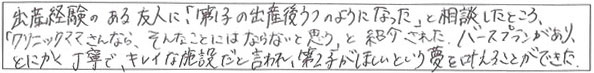 出産経験のある友人に、「第1子の出産後うつのようになった」と相談したところ、
「クリニックママさんなら、そんなことにはならないと思う」と紹介された。バースプランがあり、
とにかく丁寧で、キレイな施設だと言われ、第2子がほしいという夢を叶えることができた。